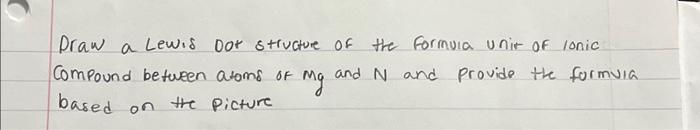 Draw a Lewis Dot structure of the formula unit of ionic
Compound between atoms of Mg and N and provide the formula
based on the picture